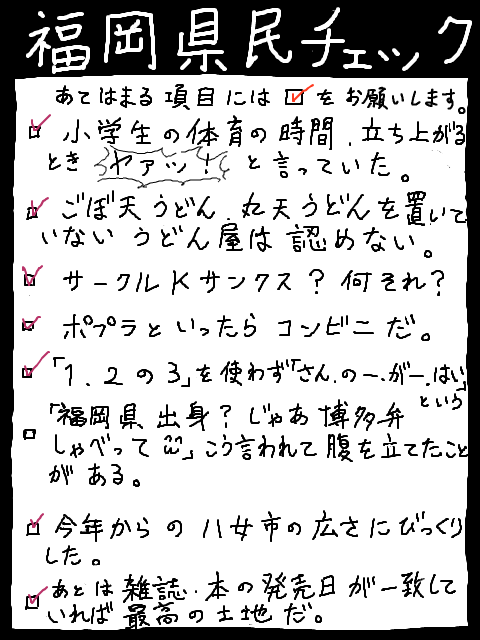 福岡県民チェック
あてはまる項目には☑をお願いします。
☑ 小学生の体育の時間、立ち上がる
とき ヤァッ! と言っていた。
☑ ごぼ天うどん、丸天うどんを置いて
いないうどん屋は認めない。
☑ サークルKサンクス?何それ?
☑ ポプラといったらコンビニだ。
☑ 「1、2の3」を使わず「さん、のー、がー、はい」
という
□ 「福岡県出身?じゃあ博多弁
しゃべって」こう言われて腹を立てたこと
がある。
☑ 今年からの八女市の広さにびっくり
した。
☑ あとは雑誌・本の発売日が一致して
いれば最高の土地だ。